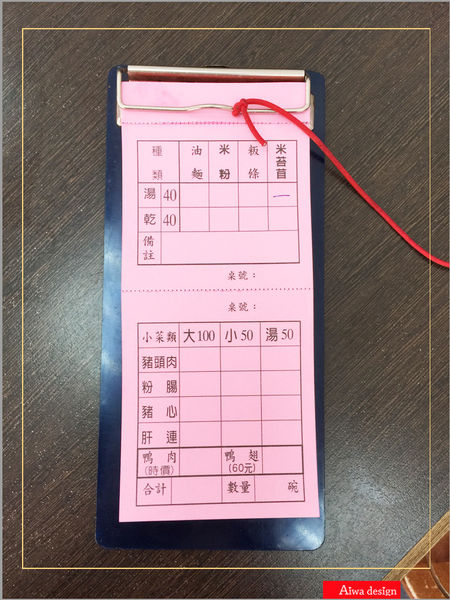 種類 油麵 米粉 粄條 米苔目
湯 40 一
乾 40
備註
桌號：
桌號：
小菜類 大100 小50 湯50
豬頭肉
粉腸
豬心
肝連
鴨肉(時價) 鴨翅(60元)
合計 數量 碗
Aiwa design